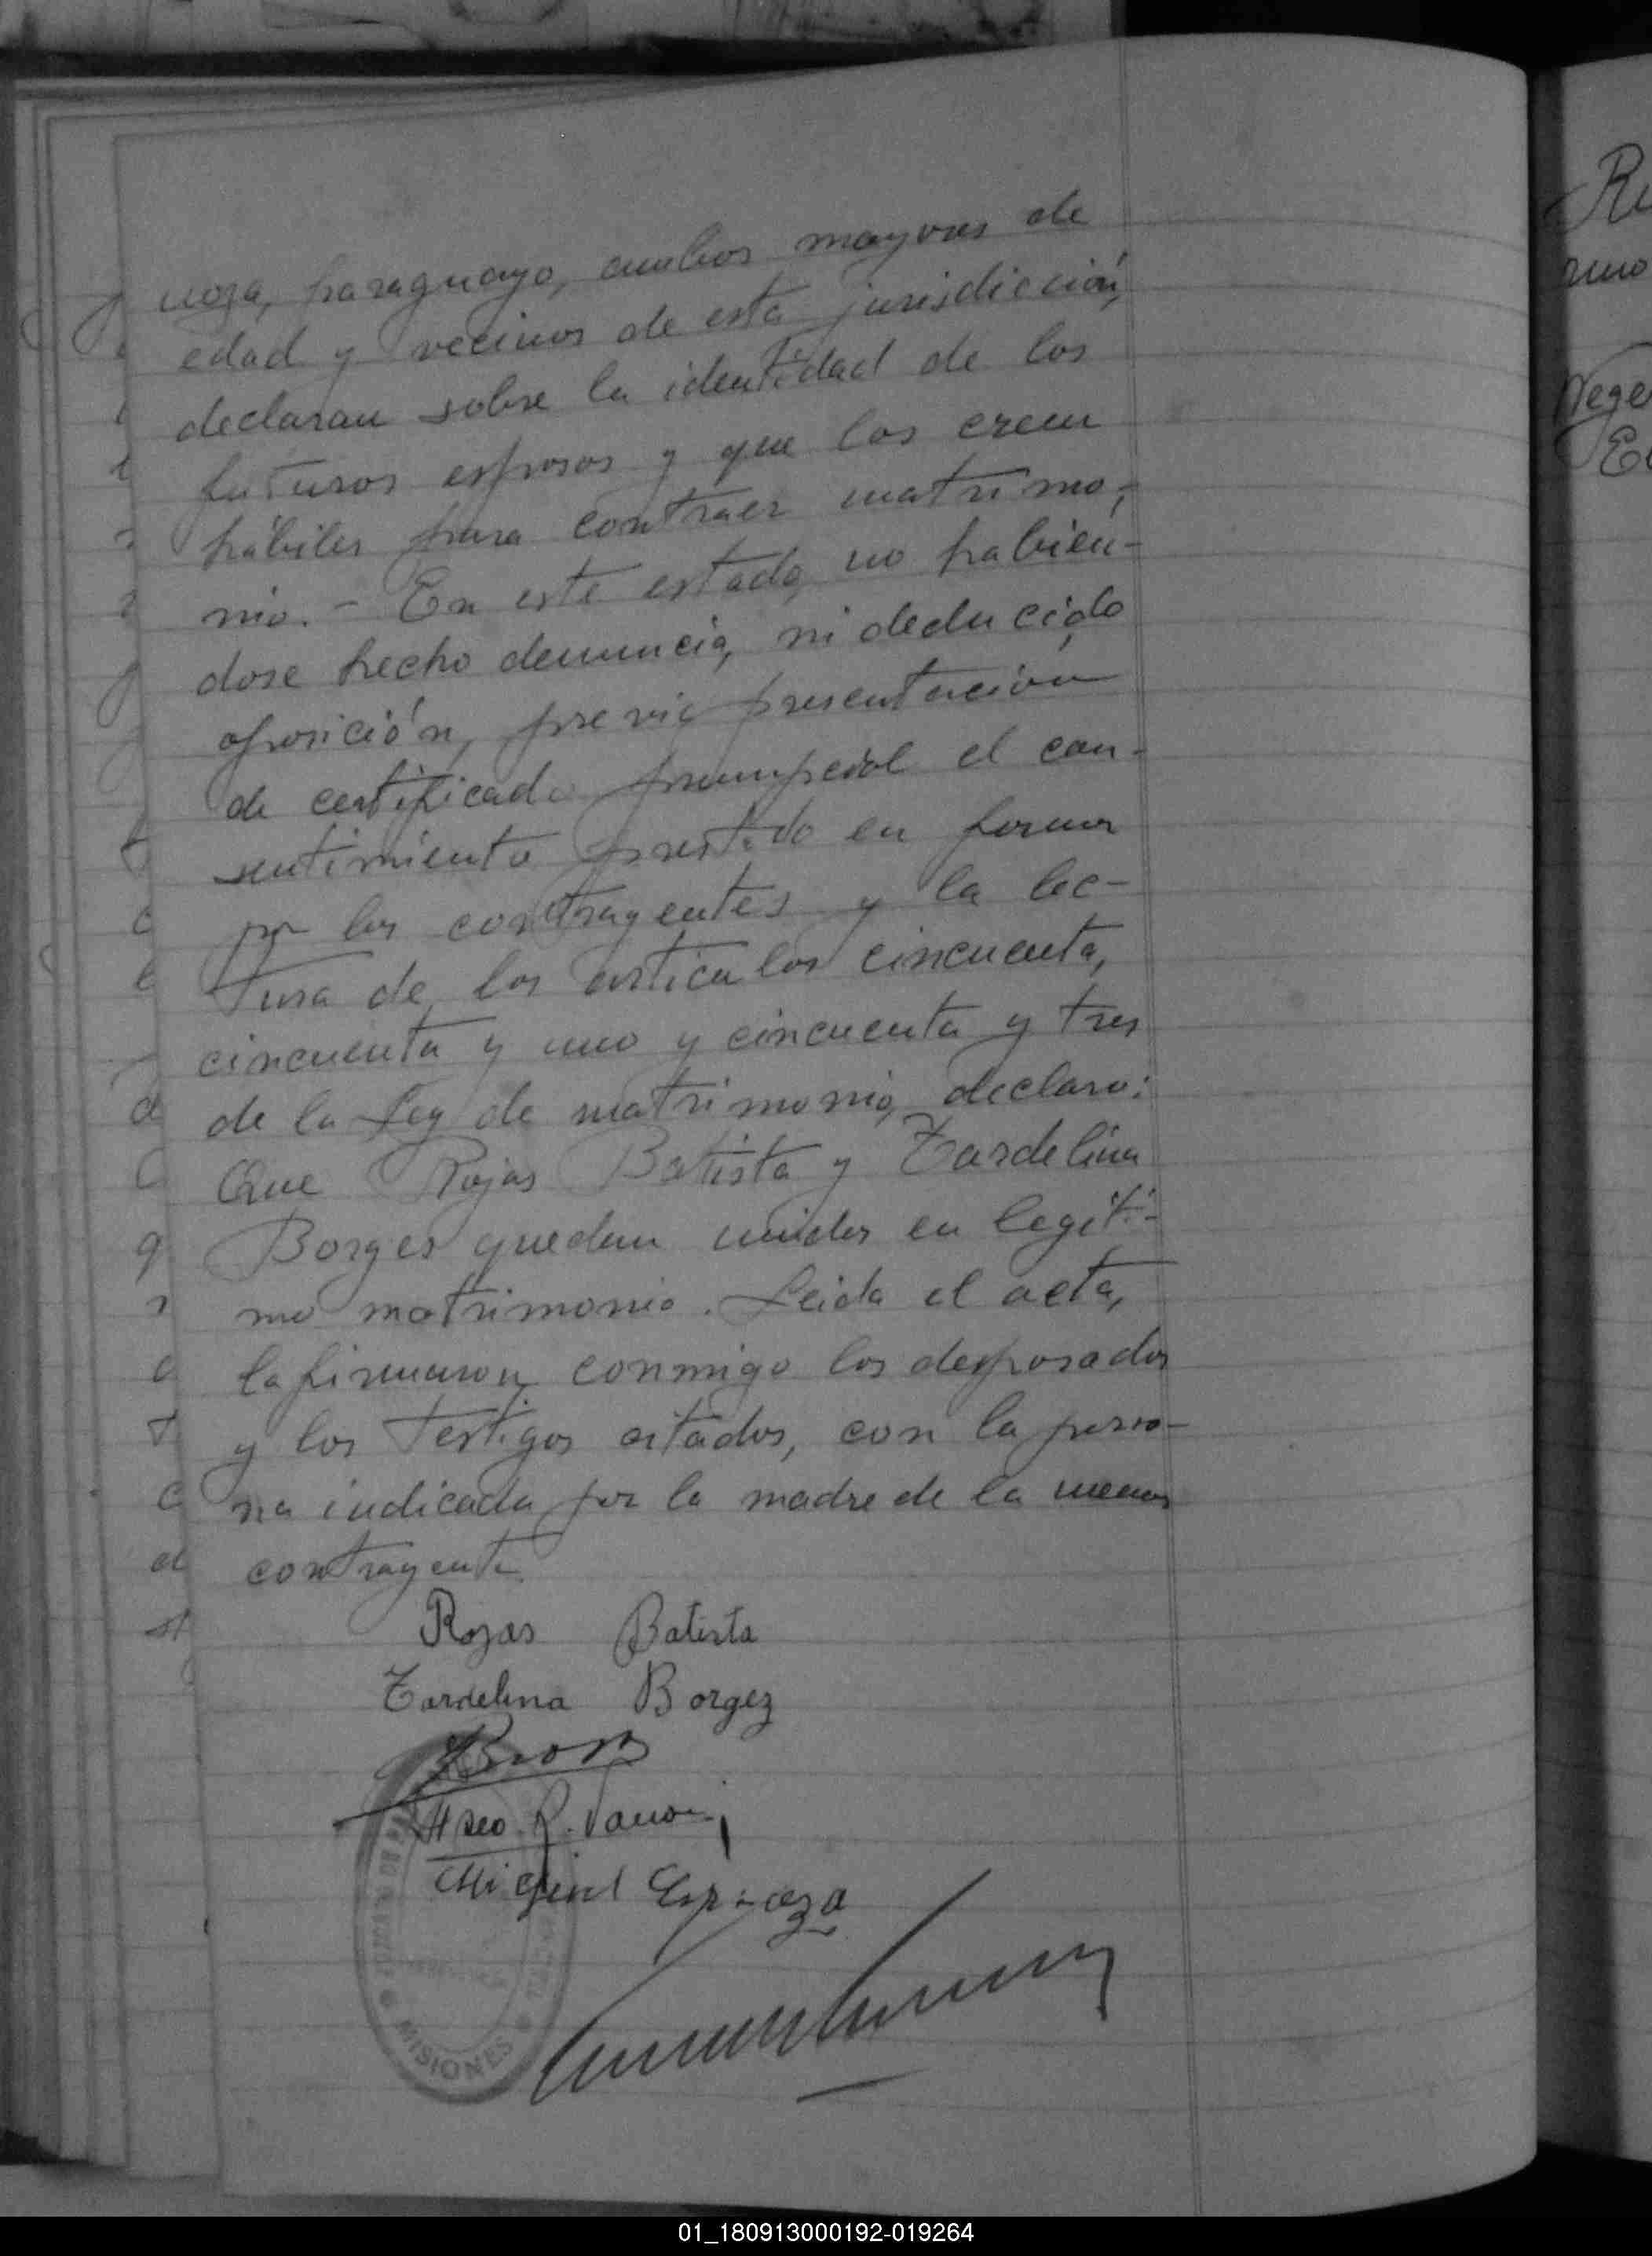 noza, paraguayo, ambos mayores de
edad y vecinos de esta jurisdicción,
declaran sobre la identidad de los
futuros esposos y que los creen
hábiles para contraer matrimo-
nio. - En este estado, no habien-
dose hecho denuncia, ni deducido
oposición, previa presentación
de certificado prenupcial el con-
sentimiento prestado en forma
por los contrayentes y la lec-
tura de los articulos cincuenta,
cincuenta y uno y cincuenta y tres
de la Ley de matrimonio, declaro:
Que Rojas Batista y Tardelina
Borges quedan unidos en legiti-
mo matrimonio. Leida el acta,
la firmaron conmigo los desposados
y los testigos citados, con la perso-
na indicada por la madre de la menor
contrayente.
Rojas Batista
Tardelina Borgez
R.
Miguel Espinoza
MISIONES
01_180913000192-019264